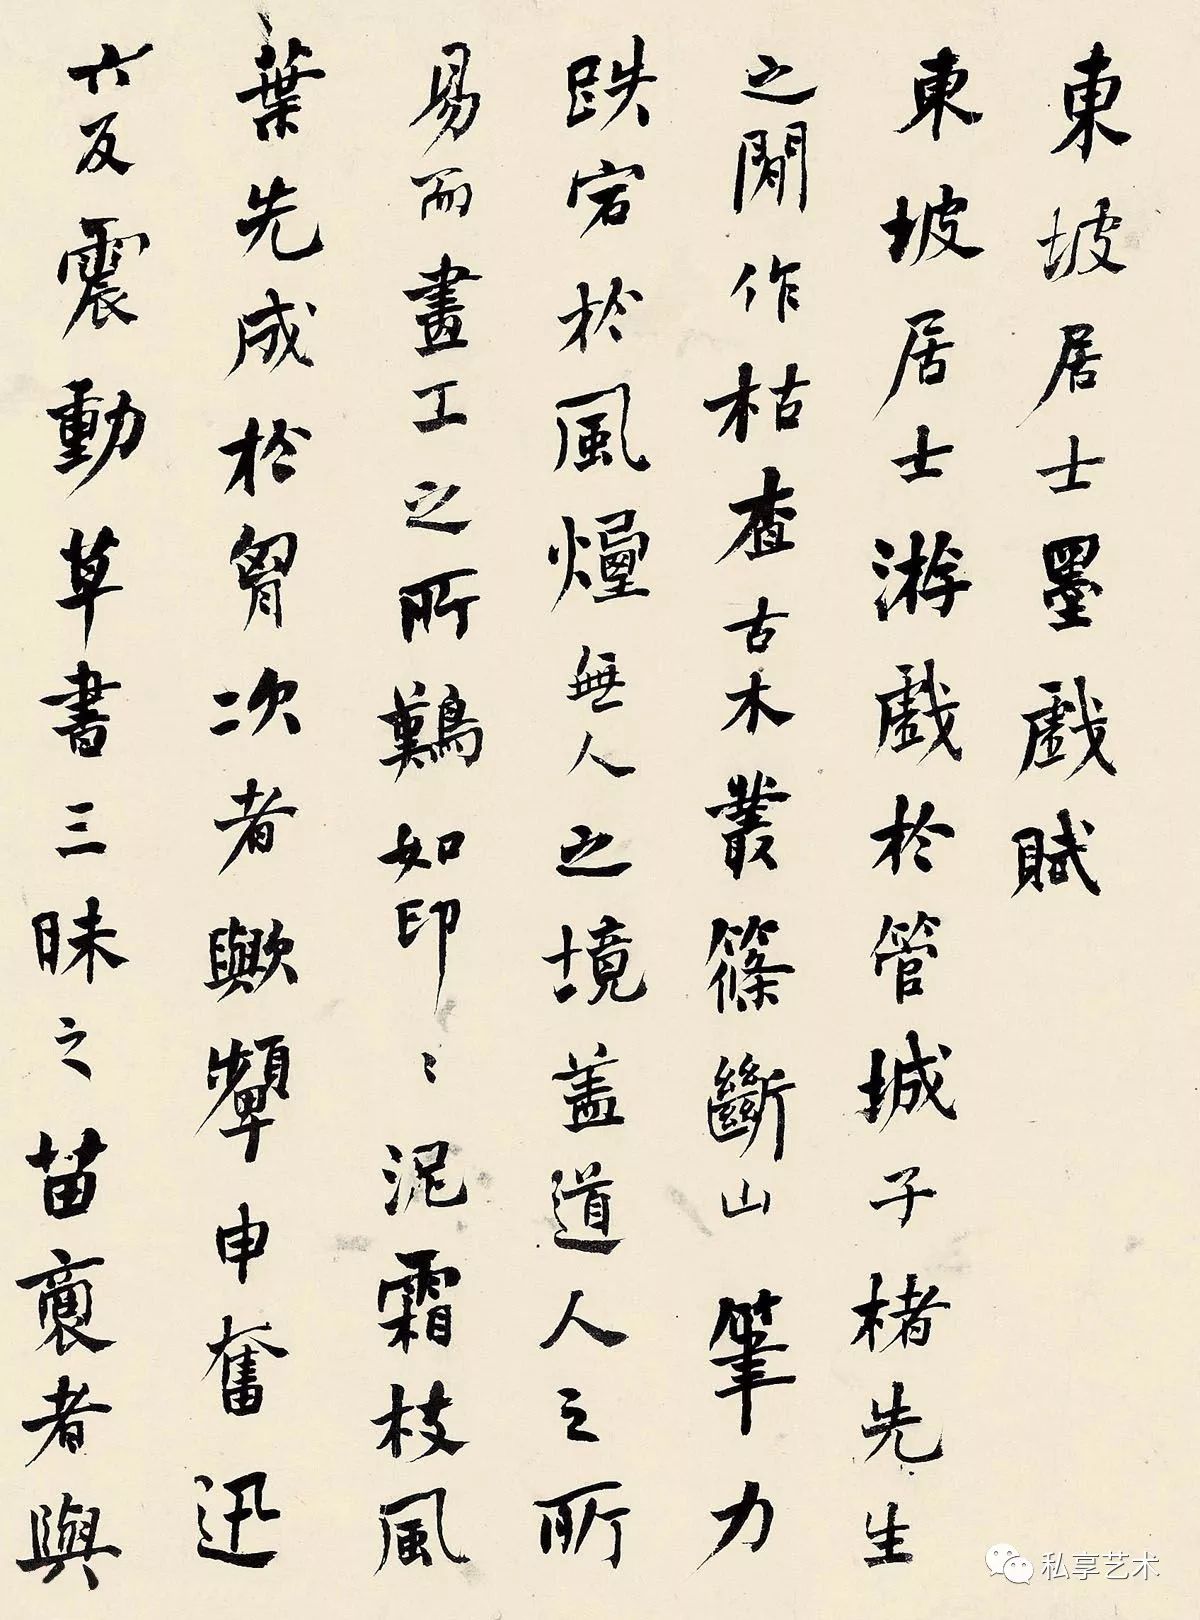 東坡居士墨戲賦
東坡居士游戲於管城子楮先生
之閒作枯槎古木叢篠斷山筆力
跌宕於風煙無人之境盖道人之所
易而畫工之所難如印印泥霜枝風
葉先成於胷次者歟顰申奮迅
六反震動草書三昧之苗裔者與
私享艺术